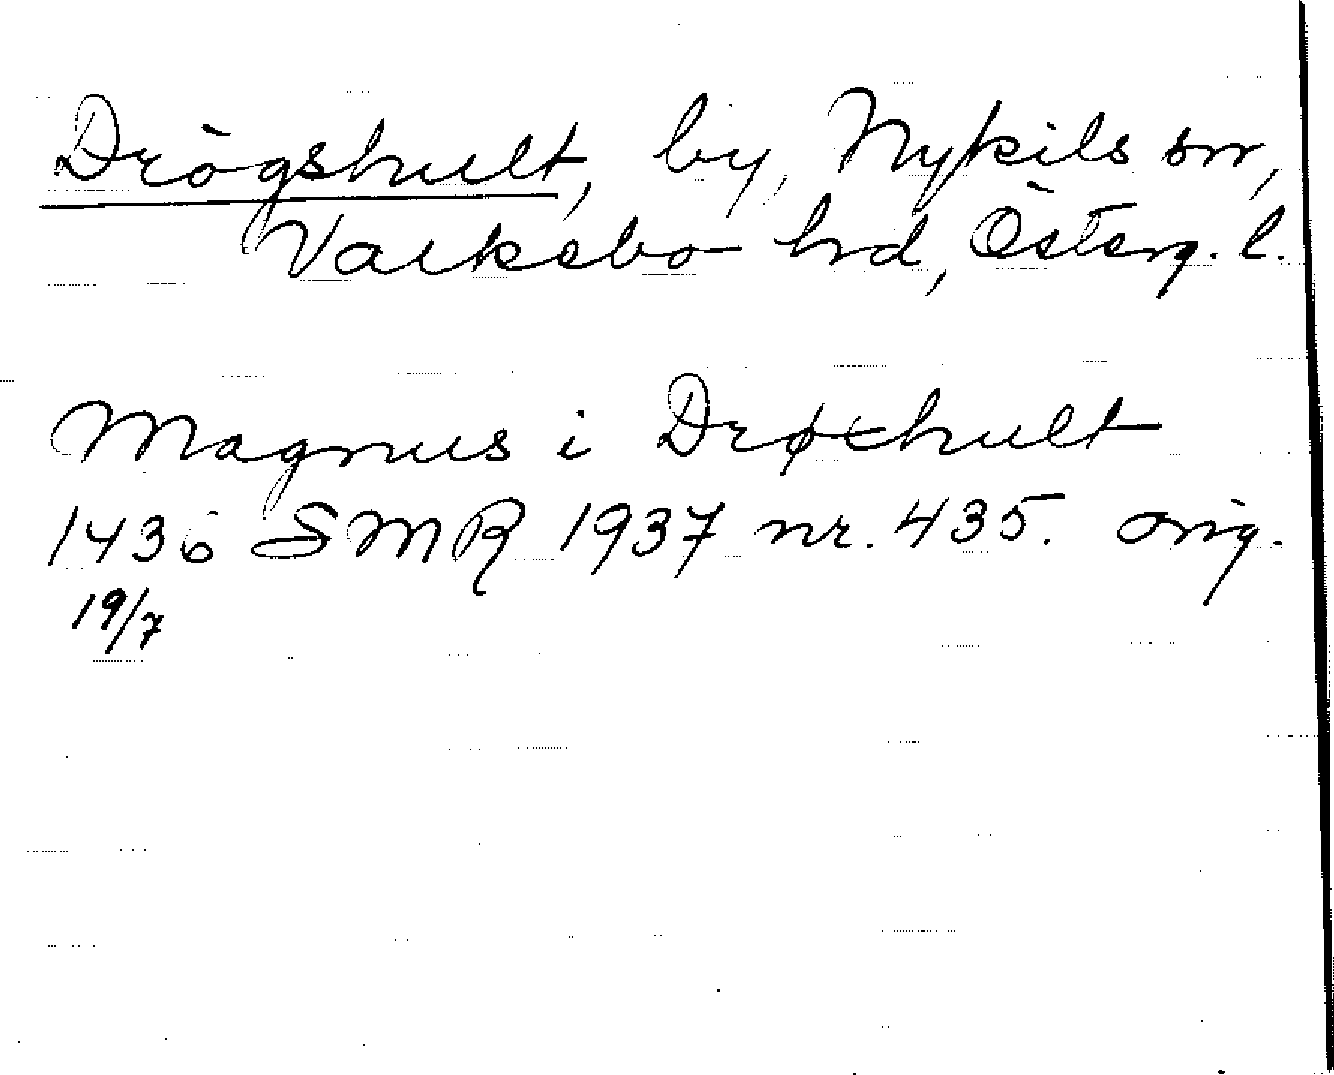 Drögshult, by, Nykils sn,
Valkebo hrd, Österg. l.
Magnus i Drøxhult
1436 SMR 1937 nr. 435. orig.
19/7